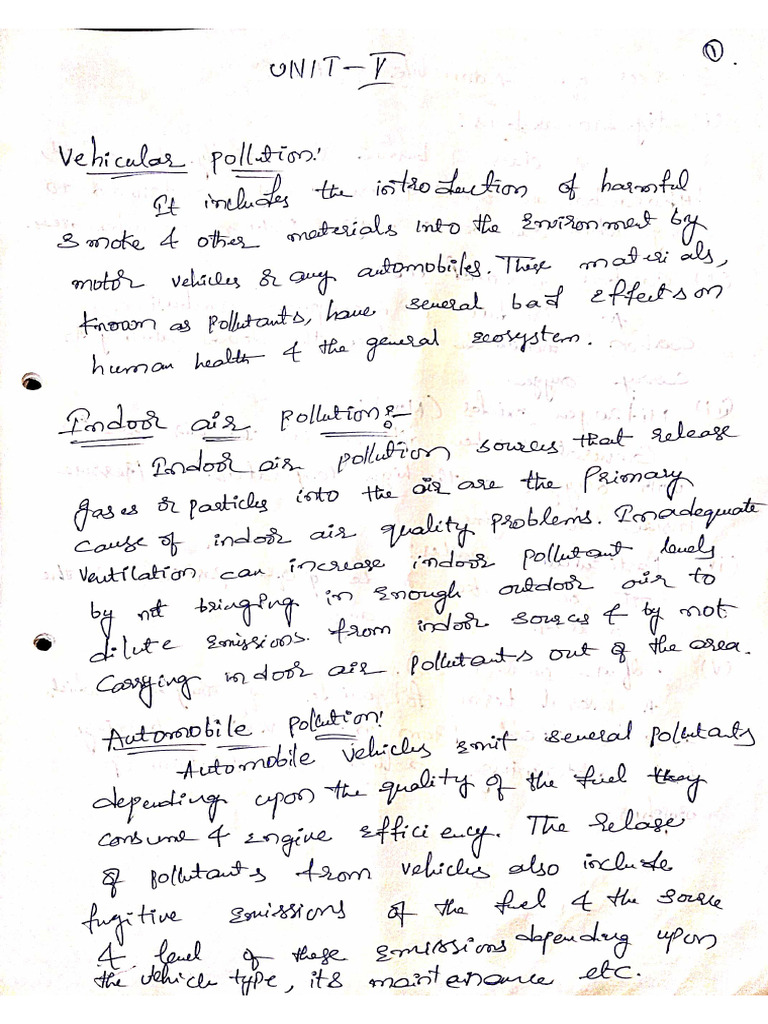 1
UNIT-V
Vehicular pollution:
It includes the introduction of harmful
smoke & other materials into the Environment by
motor vehicles or any automobiles. These materials,
known as pollutants, have several bad effects on
human health & the general ecosystem.
Indoor air pollution:-
Indoor air pollution sources that release
gases or particles into the air are the Primary
cause of indoor air quality problems. Inadequate
ventilation can increase indoor pollutant levels
by not bringing in enough outdoor air to
dilute emissions from indoor sources & by not
carrying indoor air pollutants out of the area.
Automobile pollution:
Automobile vehicles emit several pollutants
depending upon the quality of the fuel they
consume & engine efficiency. The relase
of pollutants from vehicles also include
fugitive emissions of the fuel & the source
& level of these emissions depending upon
the vehicle type, its maintenance etc.